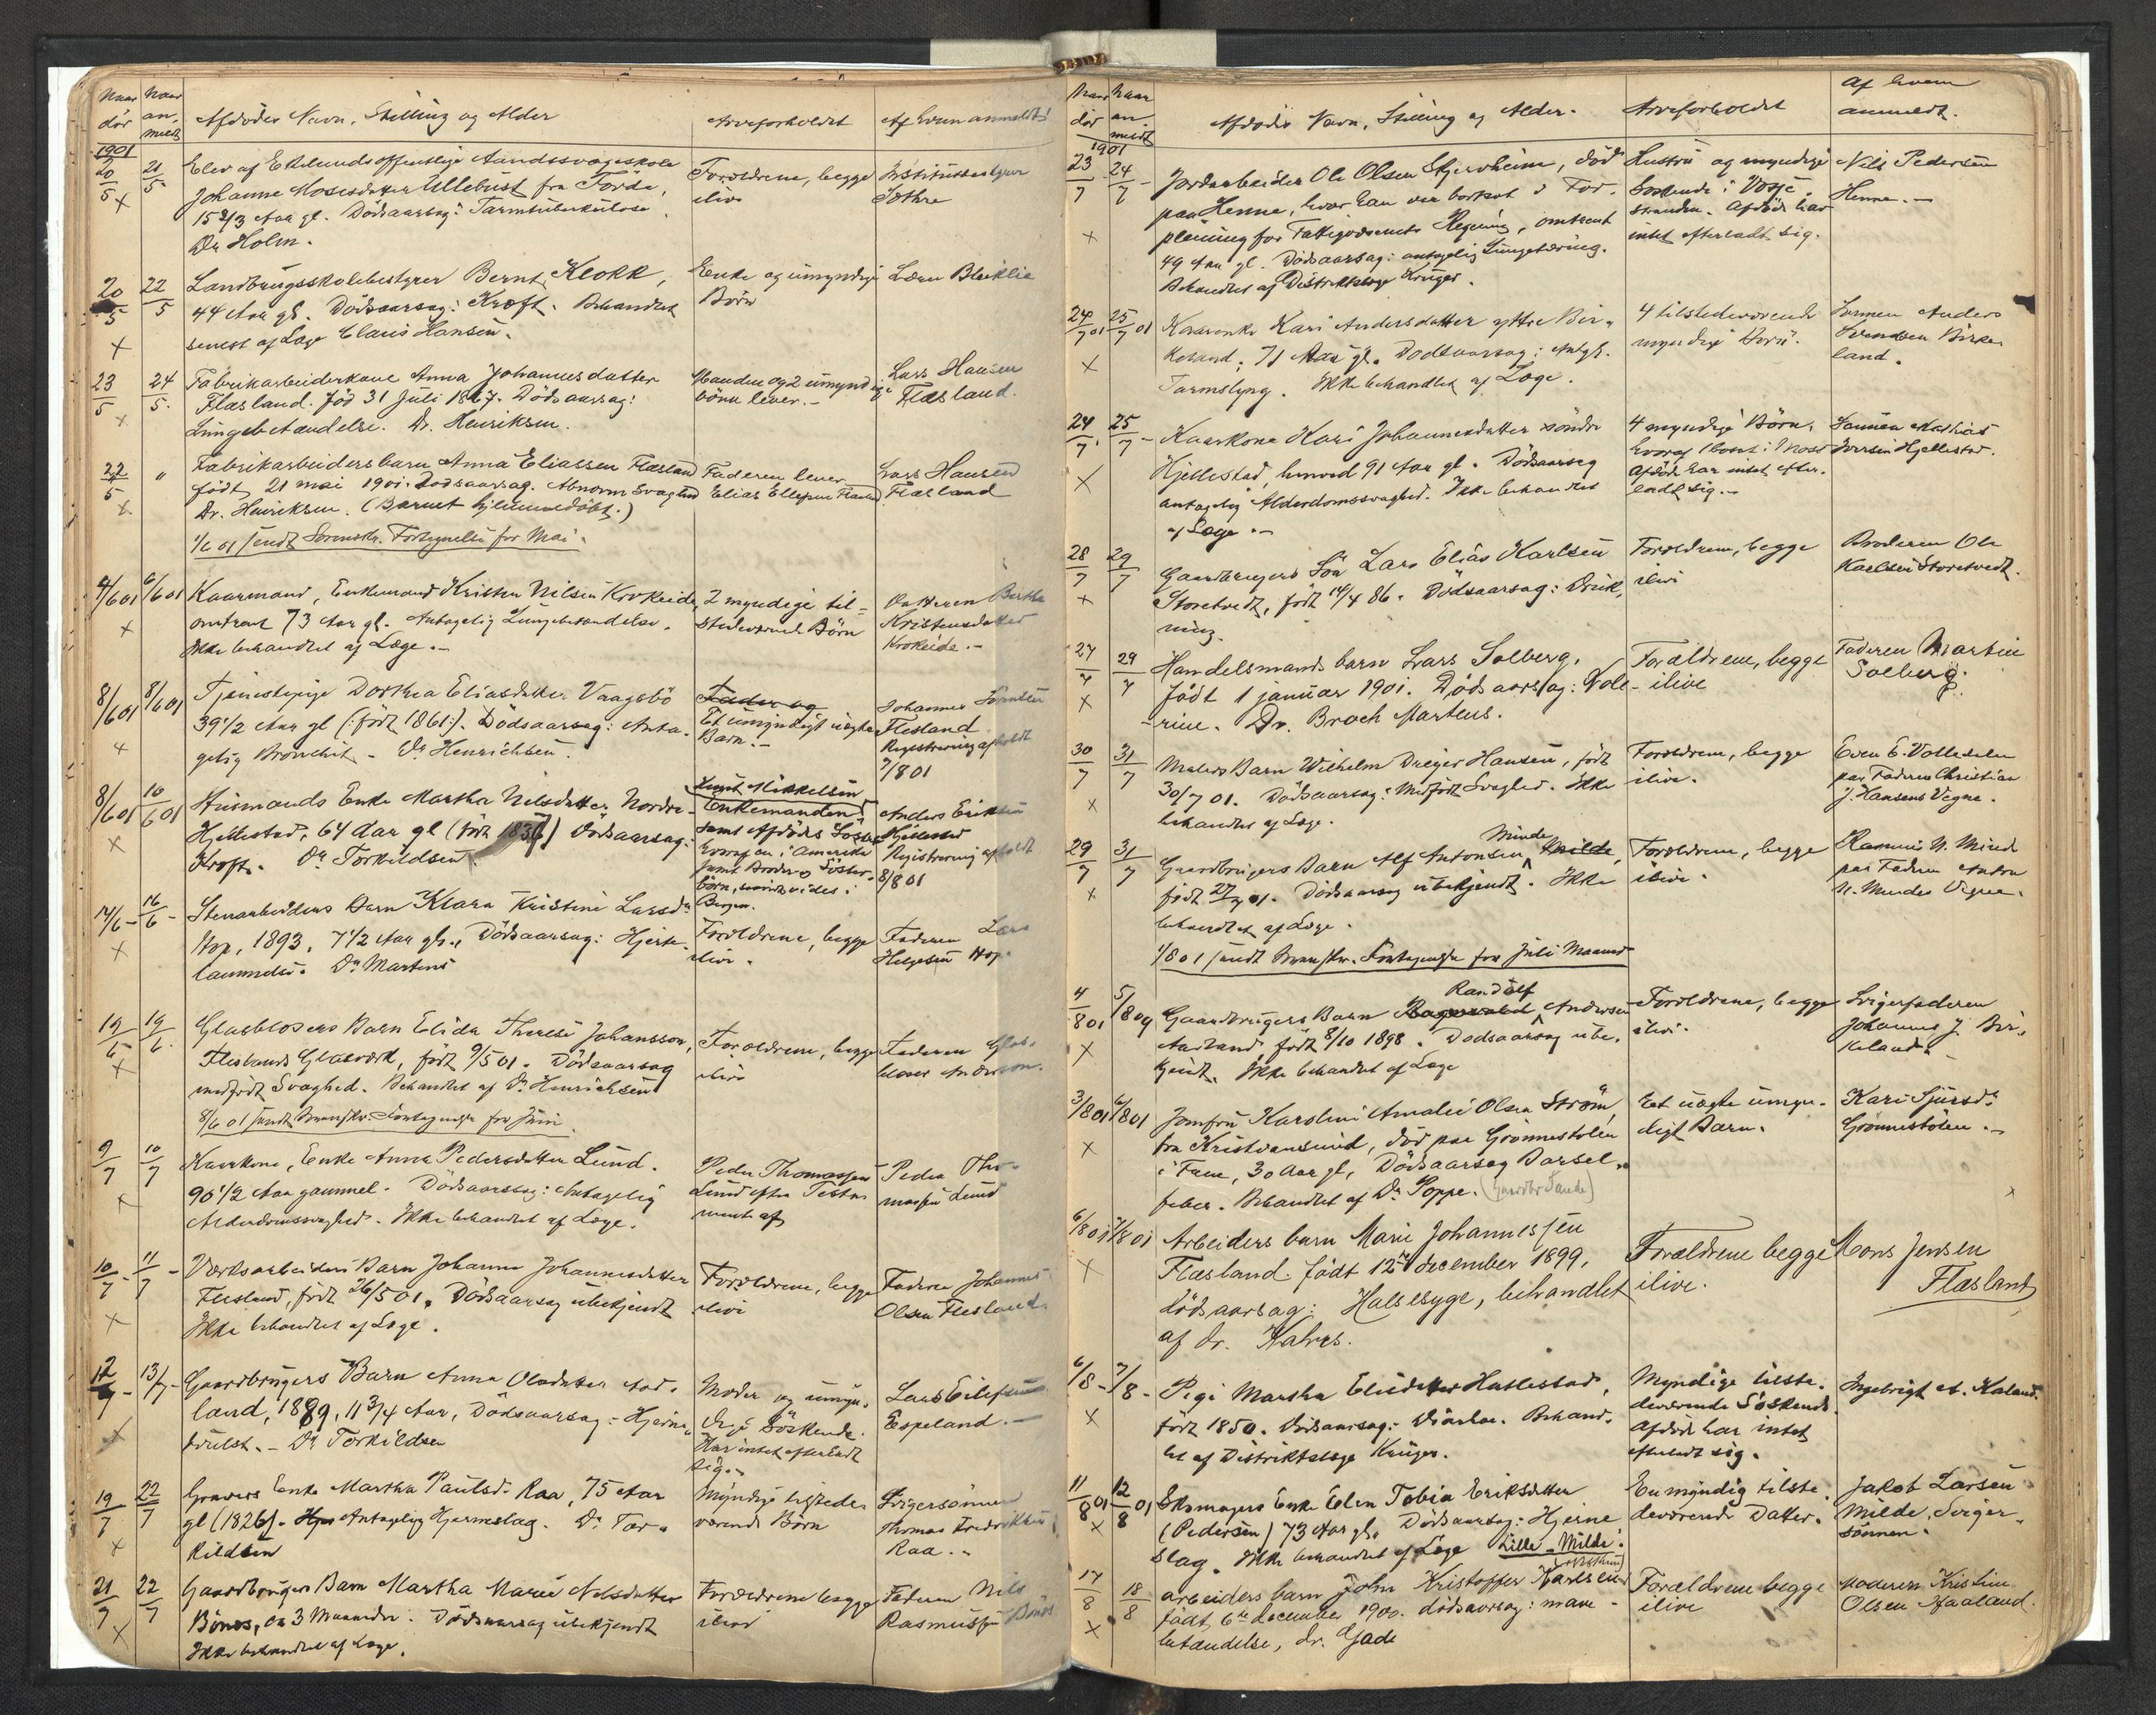 Naar dör
Naar an- meldt
Afdödes Navn, Stilling og Alder
Arveforholdet
Af hvem anmeldt
1901
20/5 21/5
Elev af Ekelunds offentlige Aandssvageskole
Johanne Mosesdatter Ullebust fra Förde,
15 2/3 Aar gl. Dödsaarsag: Tarmtuberkulose.
Dr Holm.
Forældrene, begge
ilive
Institutbestyrer
Sothre
20/5 22/5
Landbrugsskolebestyrer Bernt Klokk,
44 Aar gl. Dödsaarsag: Kræft. Behandlet
senest af Læge Claus Hansen.
Enke og umyndige
Börn
Lærer Bleiklie
23/5 24/5.
Fabrikarbeiderkone Anna Johannesdatter
Flæsland. Föd 31 Juli 1867. Dödsaarsag:
Lungebetændelse. Dr. Henriksen.
Manden og 2 umyndige
börn lever.-
Lars Hansen
Flæsland.
22/5 "
Fabrikarbeidersbarn Anna Eliassen Flæsland
födt 21 mai 1901. Dödsaarsag. Abnorm Svaghed
Dr. Henriksen. (Barnet hjemmedöbt.)
1/6 01 sendt Sorenskr. Fortegnelse for Mai.
Faderen lever
Elias Ellefsen Flæsland
Lars Hansen
Flæsland
4/6 01 6/6 01
Kaarmand, Enkemand Kristen Nilsen Krokeide,
omtrent 73 Aar gl. Antagelig Lungebetændelse.
Ikke behandlet af Læge.-
2 myndige til-
stedeværende Börn
Datteren Berthe
Kristensdatter
Krokeide.-
8/6 01 8/6 01
Tjenestepige Dorthea Eliasdatter Vaagsbö
39 1/2 Aar gl (: födt 1861:). Dödsaarsag: Anta-
gelig Bronchit - Dr Henrichsen.
Fader og
Et umyndigt uægte
Barn.-
Johannes
Flesland
Registrering afholdt
7/8 01
8/6 01 10/6 01
Husmands Enke Martha Nilsdatter Nordre-
Hjellestad, 64 Aar gl (födt 1837) Dödsaarsag:
Kræft. Dr Torkildsen
Knut Mikkelsen
Enkemanden
samt Afdödes Söster
hvoraf en i Amerika
samt Broder og Söster-
börn,
Bergen.
Anders Eriksen
Hjellestad
Registrering afholdt
8/8 01
14/6 - 16/6 -
Stenarbeiders Barn Klara Kristine Larsdr
Hop, 1893, 7 1/2 Aar gl., Dödsaarsag: Hjerte-
lammelse. Dr Martens
Forældrene, begge
ilive.
Faderen Lars
Helgesen Hop.
19/6 19/6.
Glasblæsers Barn Elida Therese Johansson,
Fleslands Glasværk, födt 9/5 01. Dödsaarsag
medfödt Svaghed. Behandlet af Dr Henrichsen
8/6 01 sendt Sorenskr. Fortegnelse for Juni.
Forældrene, begge
ilive
Faderen Glas-
blæser Andersson.
9/7 10/7
Kaarkone, Enke Anna Pedersdatter Lund.
90 1/2 Aar gammel. Dödsaarsag: Antagelig
Alderdomssvaghed. Ikke behandlet af Læge.
Peder Thomassen
Lund efter Testa-
mente af
Peder Tho-
massen Lund
10/7 - 11/7 -
Værksarbeiders Barn Johanna Johannesdatter
Flesland, födt 26/5 01. Dödsaarsag ubekjendt
Ikke behandlet af Læge.
Forældrene, begge
ilive
Faderen Johannes
Olsen Flesland.
12/7 - 13/7 -
Gaardbrugers Barn Anna Olsdatter Aad-
land, 1889, 11 3/4 Aar, Dödsaarsag: Hjerne-
svulst.- Dr Torkildsen
Moder og umyn-
dige Söskende.
Har intet efterladt
sig.-
Lars Eilefsen
Espeland.-
19/7 22/7
Gravers Enke Martha Paulsdr Raa, 75 Aar
gl (1826). Hje Antagelig Hjerneslag. Dr Tor-
kildsen
Myndige tilstede-
værende Börn
Svigersönnen
Thomas Fredrikksen
Raa.-
21/7 22/7
Gaardbrugers Barn Martha Marie Nilsdatter
Bönes, ca 3 Maaneder. Dödsaarsag ubekjendt
Ikke behandlet af Læge.
Forældrene begge
ilive
Faderen Nils
Rasmussen Bönes
Naar dör
Naar an- meldt
Afdödes Navn, Stilling og Alder.
Arveforholdet
Af hvem
anmeldt.
1901
23/7 24/7 -
Jordarbeider Ole Olsen Stjernheim, död
paa Henne, hvor han var bortsat i For-
pleining for Fattigvæsenets Regning, omtrent
49 Aar gl. Dödsaarsag: antagelig Lungetæring.
Behandlet af Distriktslæge Krüger.
Hustru og myndige
Söskende i
stranden. Afdöde har
intet efterladt sig.
Nils Pedersen
Henne.-
24/7 01 25/7 01
Kaarenke Kari Andersdatter yttre Bir-
keland, 71 Aar gl. Dödsaarsag: Antgl.
Tarmslyng. Ikke behandlet af Læge.
4 tilstedeværende
myndige Börn.
Sönnen Anders
Svendsen Birke-
land.
24/7. 25/7 -
Kaarkone Kari Johannesdatter söndre
Hjellestad, henved 91 Aar gl. Dödsaarsag
antagelig Alderdomssvaghed. Ikke behandlet
af Læge.-
4 myndige Börn,
hvoraf 1 bort:
Afdöde har intet efter-
ladt sig.-
Sönnen Mathias
Iversen Hjellestad.
28/7 29/7
Gaardbrugers Sön Lars Elias Karlsen
Storetvedt, födt 14/4 86. Dödsaarsag: Druk-
ning.
Forældrene, begge
ilive
Broderen Ole
Karlsen Storetvedt.
27/7 29/7
Handelsmands barn Lars Solberg,
födt 1 januar 1901. Dödsaarsag: Cole-
-rine. Dr. Broch Martens.
Forældrene, begge
- ilive
Faderen Martin
Solberg.
30/7 31/7
Malers Barn Wilhelm Dreyer Hansen, födt
30/7 01. Dödsaarsag: Medfödt Svaghed. Ikke
behandlet af Læge.
Forældrene, begge
ilive.
Even E. Vollesdalen
paa Faderen Christian
J. Hansens Vegne.
29/7 31/7
Gaardbrugers Barn Alf Antonsen Minde Milde,
födt 27/7 01. Dödsaarsag ubekjendt. Ikke
behandlet af Læge.
1/8 01 sendt Sorenskr. Fortegnelse for Juli Maaned
Forældrene, begge
ilive.
Rasmus N. Minde
paa Faderen Anton
N. Mindes Vegne.
4/8 01 5/8 01
Randolf
Gaardbrugers Barn Ragnvald Andersen
Aadland födt 8/10 1898. Dödsaarsag ube-
kjendt. Ikke behandlet af Læge
Forældrene, begge
ilive.
Svigerfaderen
Johannes J. Bir-
keland.
3/8 01 6/8 01
Jomfru Karoline Amalie Olsen Ström,
fra Kristiansund, död paa Grönnestölen
i Fane, 30 Aar gl, Dödsaarsag Barsel-
feber. Behandlet af Dr Poppe.
Eet uægte umyn-
digt Barn.
Kari Sjursdr
Grönnestölen.-
6/8 01 7/8 01
Arbeiders barn Marie Johannessen
Flæsland. födt 12te december 1899,
dödsaarsag: Halssyge, behandlet
af dr. Kahrs.
Forældrene begge
ilive.
Mons Jensen
Flæsland
6/8 - 7/8 -
Pige Martha Elisdatter Hatlestad,
födt 1850. Dödsaarsag: Diarhe. Behand-
let af Distriktslæge Krüger.
Myndige tilste-
deværende Söskende.
Afdöde har intet
efterladt sig.
Ingebrigt A. Haland.
11/8 01 12/8 01
Skomagers Enke Elen Tobia Eriksdatter
(Pedersen) 73 Aar gl. Dödsaarsag: Hjerne
slag. Ikke behandlet af Læge Lille-Milde.
En myndig tilste-
deværende Datter.
Jakob Larsen
Milde, Sviger-
sönnen.
17/8 18/8
arbeiders barn John Kristoffer Karlsen
födt 6te december 1900. dödsaarsag: mave-
betændelse, dr. Gade
Forældrene begge
ilive
Moderen Kristine
Olsen Haaland.